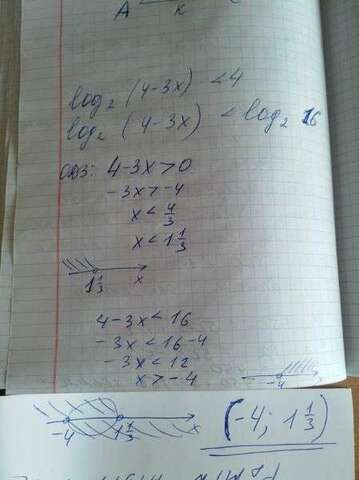 A K
log₂ (4-3x) < 4
log₂ (4-3x) < log₂ 16
ОДЗ: 4-3x>0
-3x>-4
x < 4/3
x < 1 1/3
1 1/3 x
4-3x < 16
-3x < 16-4
-3x < 12
x > -4
-4
-4 1 1/3 x
(-4; 1 1/3)